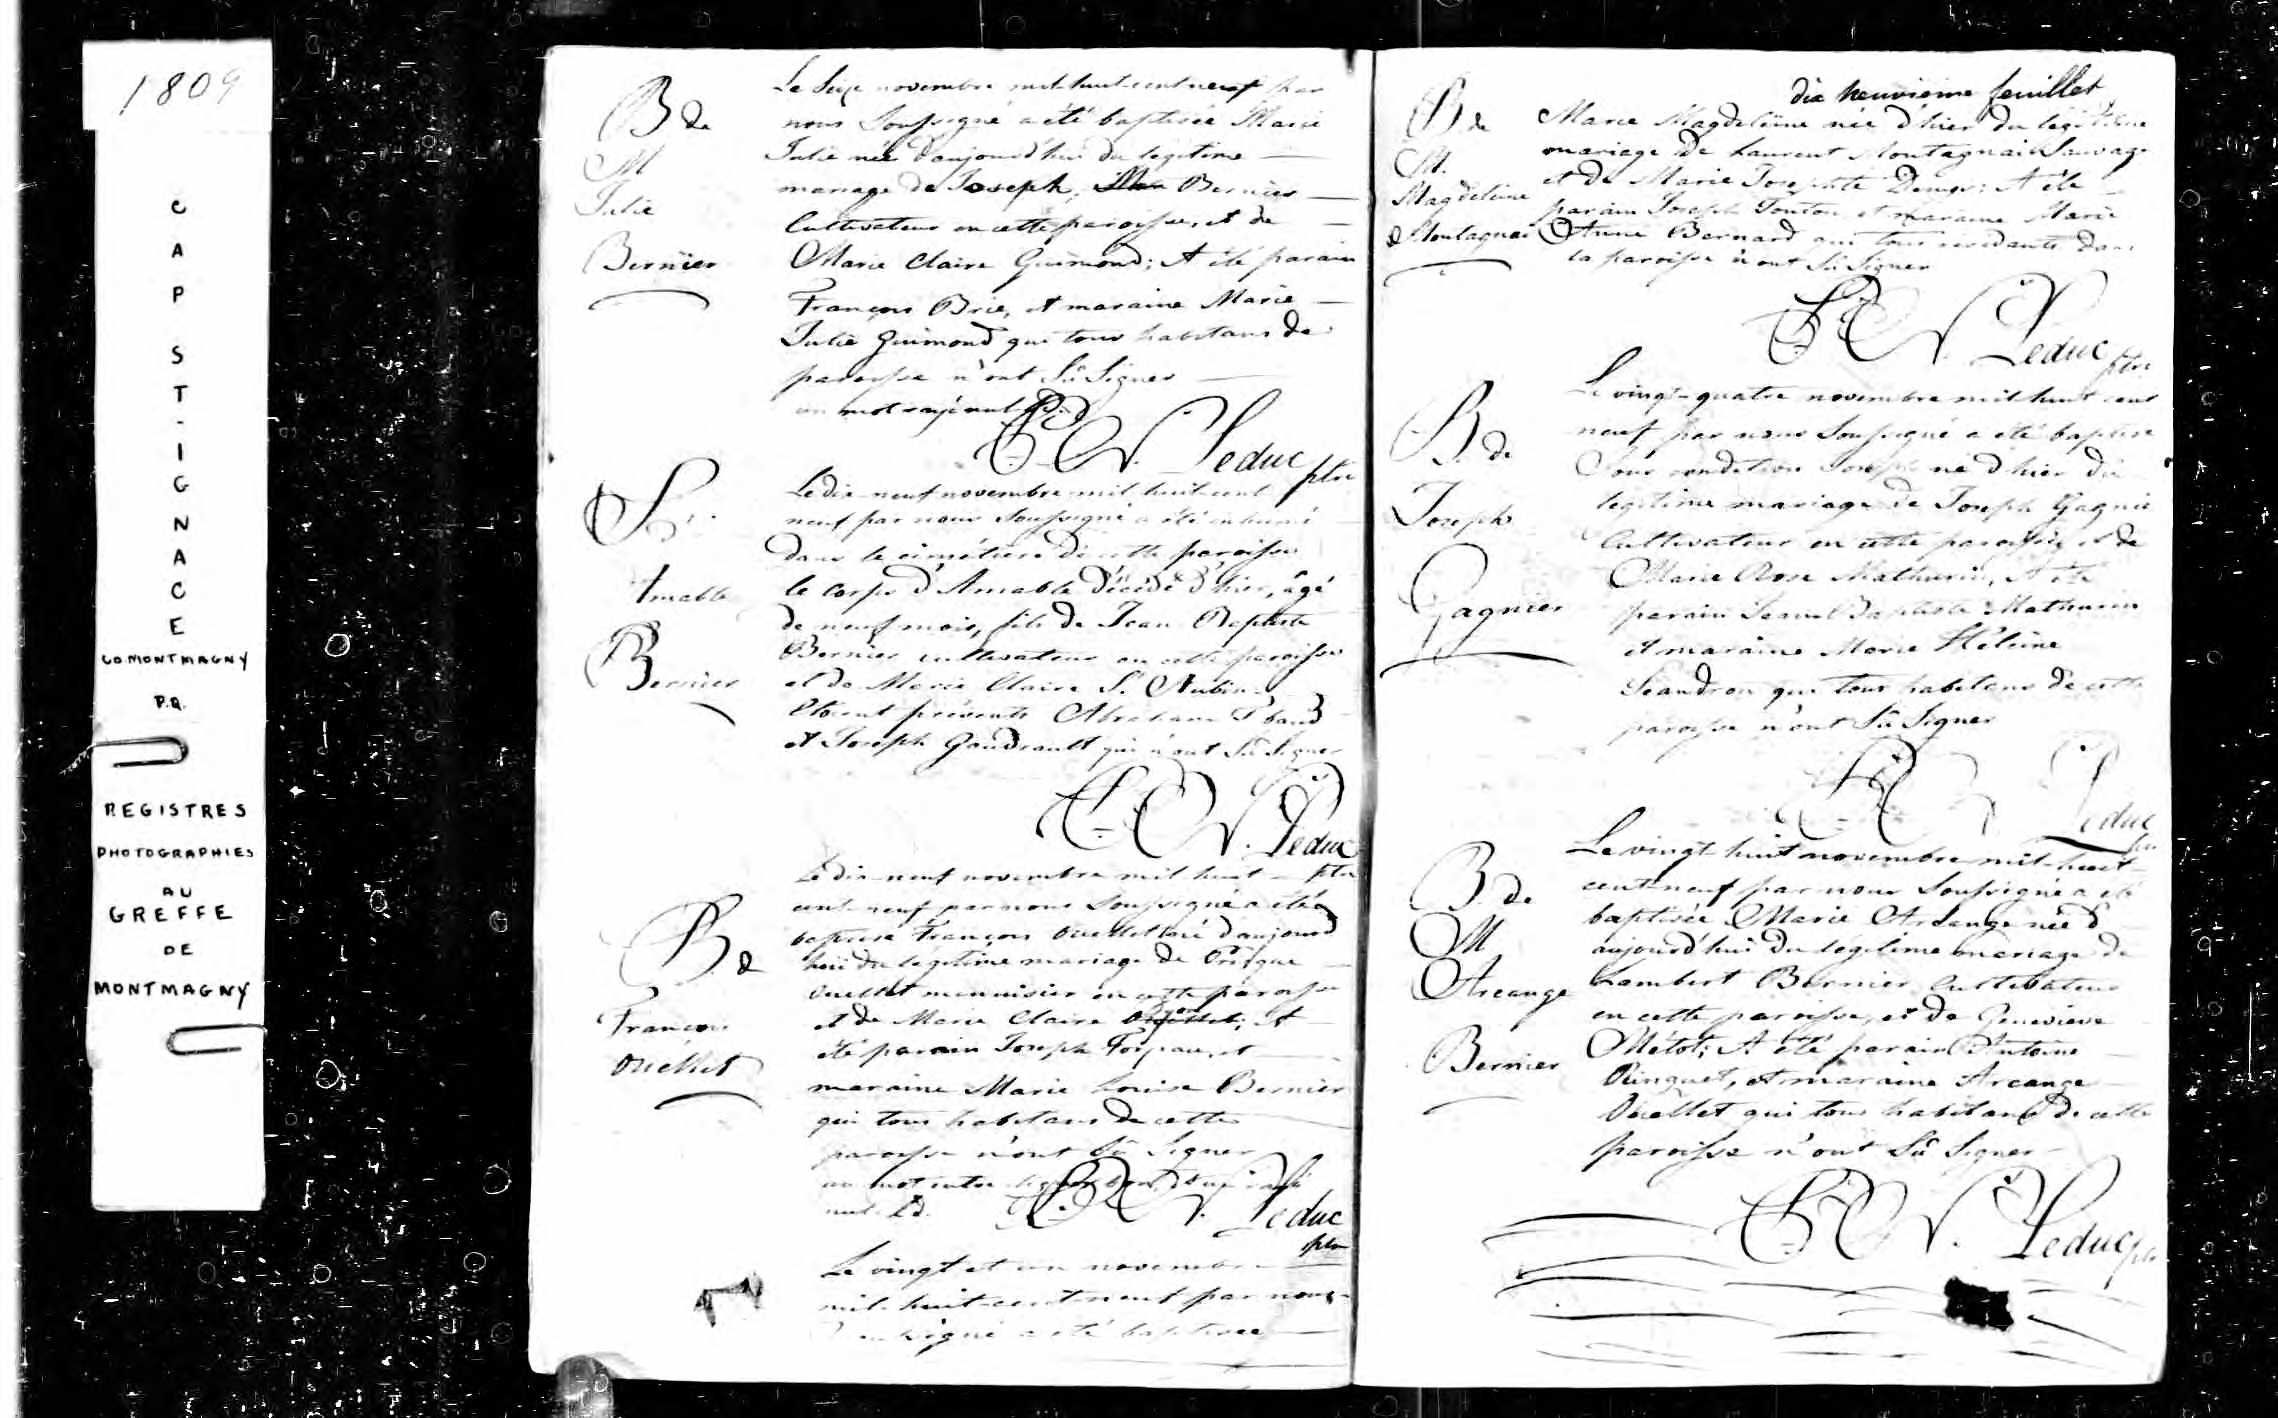 1809
CAP ST-IGNACE
CO. MONTMAGNY
P.Q.
REGISTRES
PHOTOGRAPHIES
AU
GREFFE
DE
MONTMAGNY
B de
M
Julie
Bernier
Le Seize novembre mil-huit-cent neuf par
nous Soussigné a été baptisée Marie
Julie née d'aujourd'hui du legitime
mariage de Joseph, Bernier
Cultivateur en cette paroisse, et de
Marie Claire Guimond; A été parain
François Brie, et maraine Marie
Julie Guimond qui tous habitans de
paroisse n'ont Sû Signer
un mot rayé nul
Leduc ptre
S.
Amable
Bernier
Le dix-neuf novembre mil huit-cent
neuf par nous Soussigné a été inhumé
dans le cimétiere de cette paroisse
le corps d'Amable décédé d'hier, âgé
de neuf mois, fils de Jean Baptiste
Bernier cultivateur en cette paroisse
et de Marie Claire St. Aubin.
Etoient présents Abraham
et Joseph Gaudrault qui n'ont Sû Signer
Leduc
ptre
B de
François
Ouellet
Le dix-neuf novembre mil huit
cent-neuf par nous Soussigné a été
baptisé François Ouellet né d'aujourd
hui du legitime mariage de
Ouellet menuisier en cette paroisse
et de Marie Claire A
été parain Joseph et
maraine Marie Louise Bernier
qui tous habitans de cette
paroisse n'ont Sû Signer
un mot entre
nul
Leduc
ptre
Le vingt et un novembre
mil-huit-cent-neuf par nous
Soussigné a été baptisée
dix neuvième feuillet
B de
M.
Magdeleine
Montagnai
Marie Magdeleine née d'hier du legitime
mariage de Laurent Montagnais Sauvage
et de Marie Josephte A été
parain Joseph et maraine Marie
Anne Bernard qui tous residants dans
la paroisse n'ont Sû Signer
Leduc ptre
B. de
Joseph
Gagnier
Le vingt-quatre novembre mil-huit cent
neuf par nous Soussigné a été baptisé
Sous condition Joseph né d'hier du
legitime mariage de Joseph Gagnié
Cultivateur en cette paroisse, et de
Marie Rose Mathurin, A été
parain Jean Baptiste Mathurin
et maraine Marie Hélène
qui tous habitans de cette
paroisse n'ont Sû Signer
Leduc
B. de
M
Arcange
Bernier
Le vingt-huit novembre mil-huit
cent-neuf par nous Soussigné a été
baptisée Marie Arcange née d'
aujourd'hui du legitime mariage de
Lambert Bernier Cultivateur
en cette paroisse, et de Genevieve
Métot; A été parain Antoine
Ringuet, et maraine Arcange
Ouellet qui tous habitans de cette
paroisse n'ont Sû Signer
Leduc